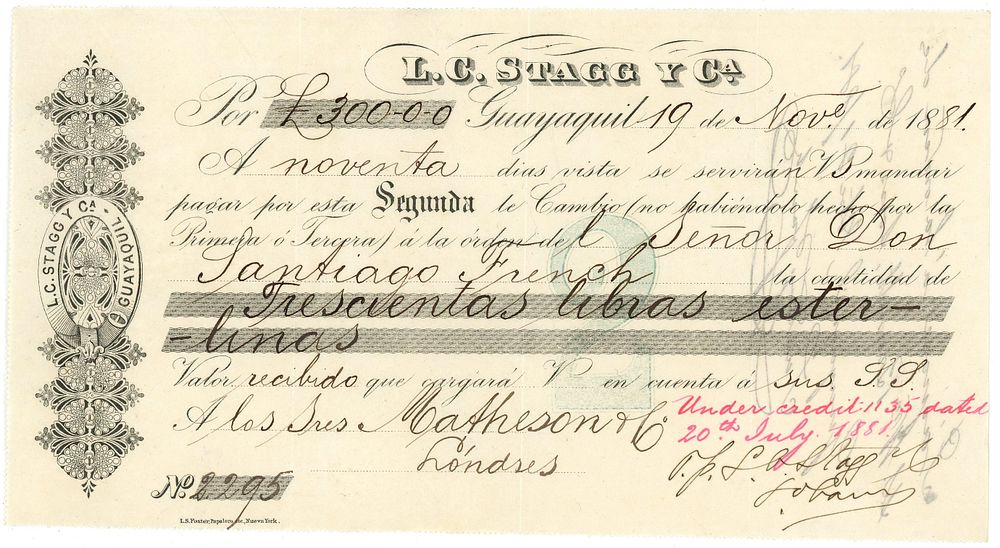 L.C. STAGG Y CA.
Por £ 300-0-0 Guayaquil 19 de Nove. de 1881.
A noventa dias vista se servirán V mandar
pagar por esta Segunda de Cambio (no habiéndolo hecho por la
Primera ó Tercera) á la orden del Señor Don
Santiago French la cantidad de
Trescientas libras ester-
-linas
Valor recibido que cargará V en cuenta á sus S.S.
A los Sres Matheson & Co.
Under credit 1135 dated
20th July. 1881
Londres
No. 2295
L.C. STAGG Y CA. GUAYAQUIL
2
L.S. Foster, Papelero, etc., Nueva York.